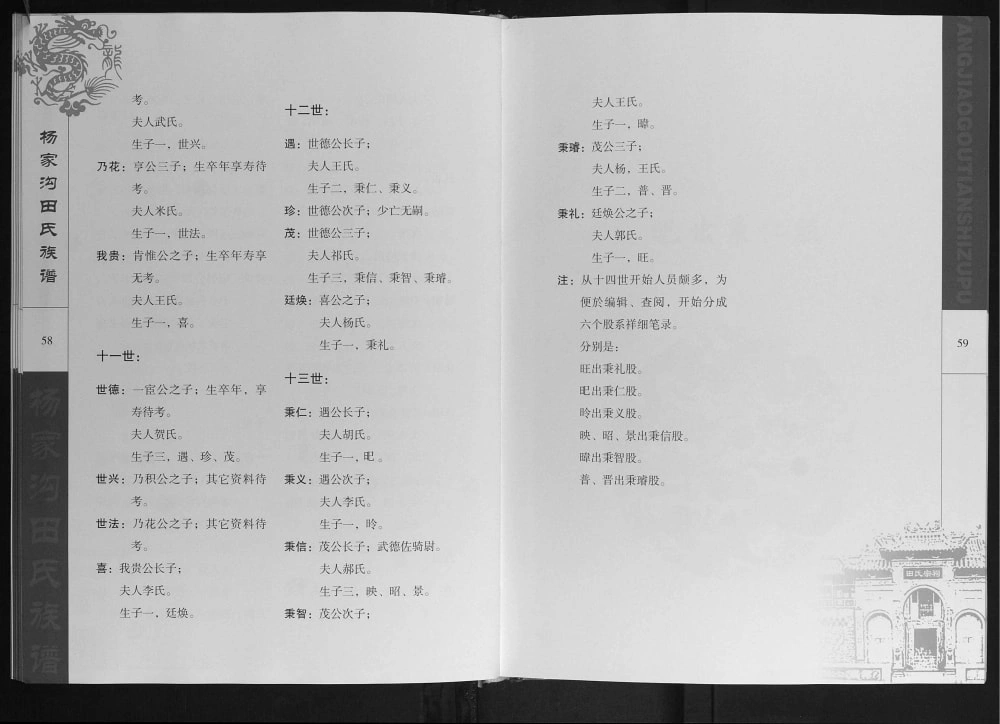 杨家沟田氏族谱
58
杨家沟田氏族谱
考。
夫人武氏。
生子一，世兴。
乃花：亨公三子；生卒年享寿待
考。
夫人米氏。
生子一，世法。
我贵：肯惟公之子；生卒年寿享
无考。
夫人王氏。
生子一，喜。
十一世：
世德：一宦公之子；生卒年，享
寿待考。
夫人贺氏。
生子三，遇、珍、茂。
世兴：乃积公之子；其它资料待
考。
世法：乃花公之子；其它资料待
考。
喜：我贵公长子；
夫人李氏。
生子一，廷焕。
十二世：
遇：世德公长子；
夫人王氏。
生子二，秉仁、秉义。
珍：世德公次子；少亡无嗣。
茂：世德公三子；
夫人祁氏。
生子三，秉信、秉智、秉璿。
廷焕：喜公之子；
夫人杨氏。
生子一，秉礼。
十三世：
秉仁：遇公长子；
夫人胡氏。
生子一，㫕。
秉义：遇公次子；
夫人李氏。
生子一，昤。
秉信：茂公长子；武德佐骑尉。
夫人郝氏。
生子三，映、昭、景。
秉智：茂公次子；
夫人王氏。
生子一，暐。
秉璿：茂公三子；
夫人杨，王氏。
生子二，普、晋。
秉礼：廷焕公之子；
夫人郭氏。
生子一，旺。
注：从十四世开始人员颇多，为
便於编辑、查阅，开始分成
六个股系祥细笔录。
分别是：
旺出秉礼股。
㫕出秉仁股。
昤出秉义股。
映、昭、景出秉信股。
暐出秉智股。
普、晋出秉璿股。
ANGJIAOGOUTIANSHIZUPU
59
田氏宗祠